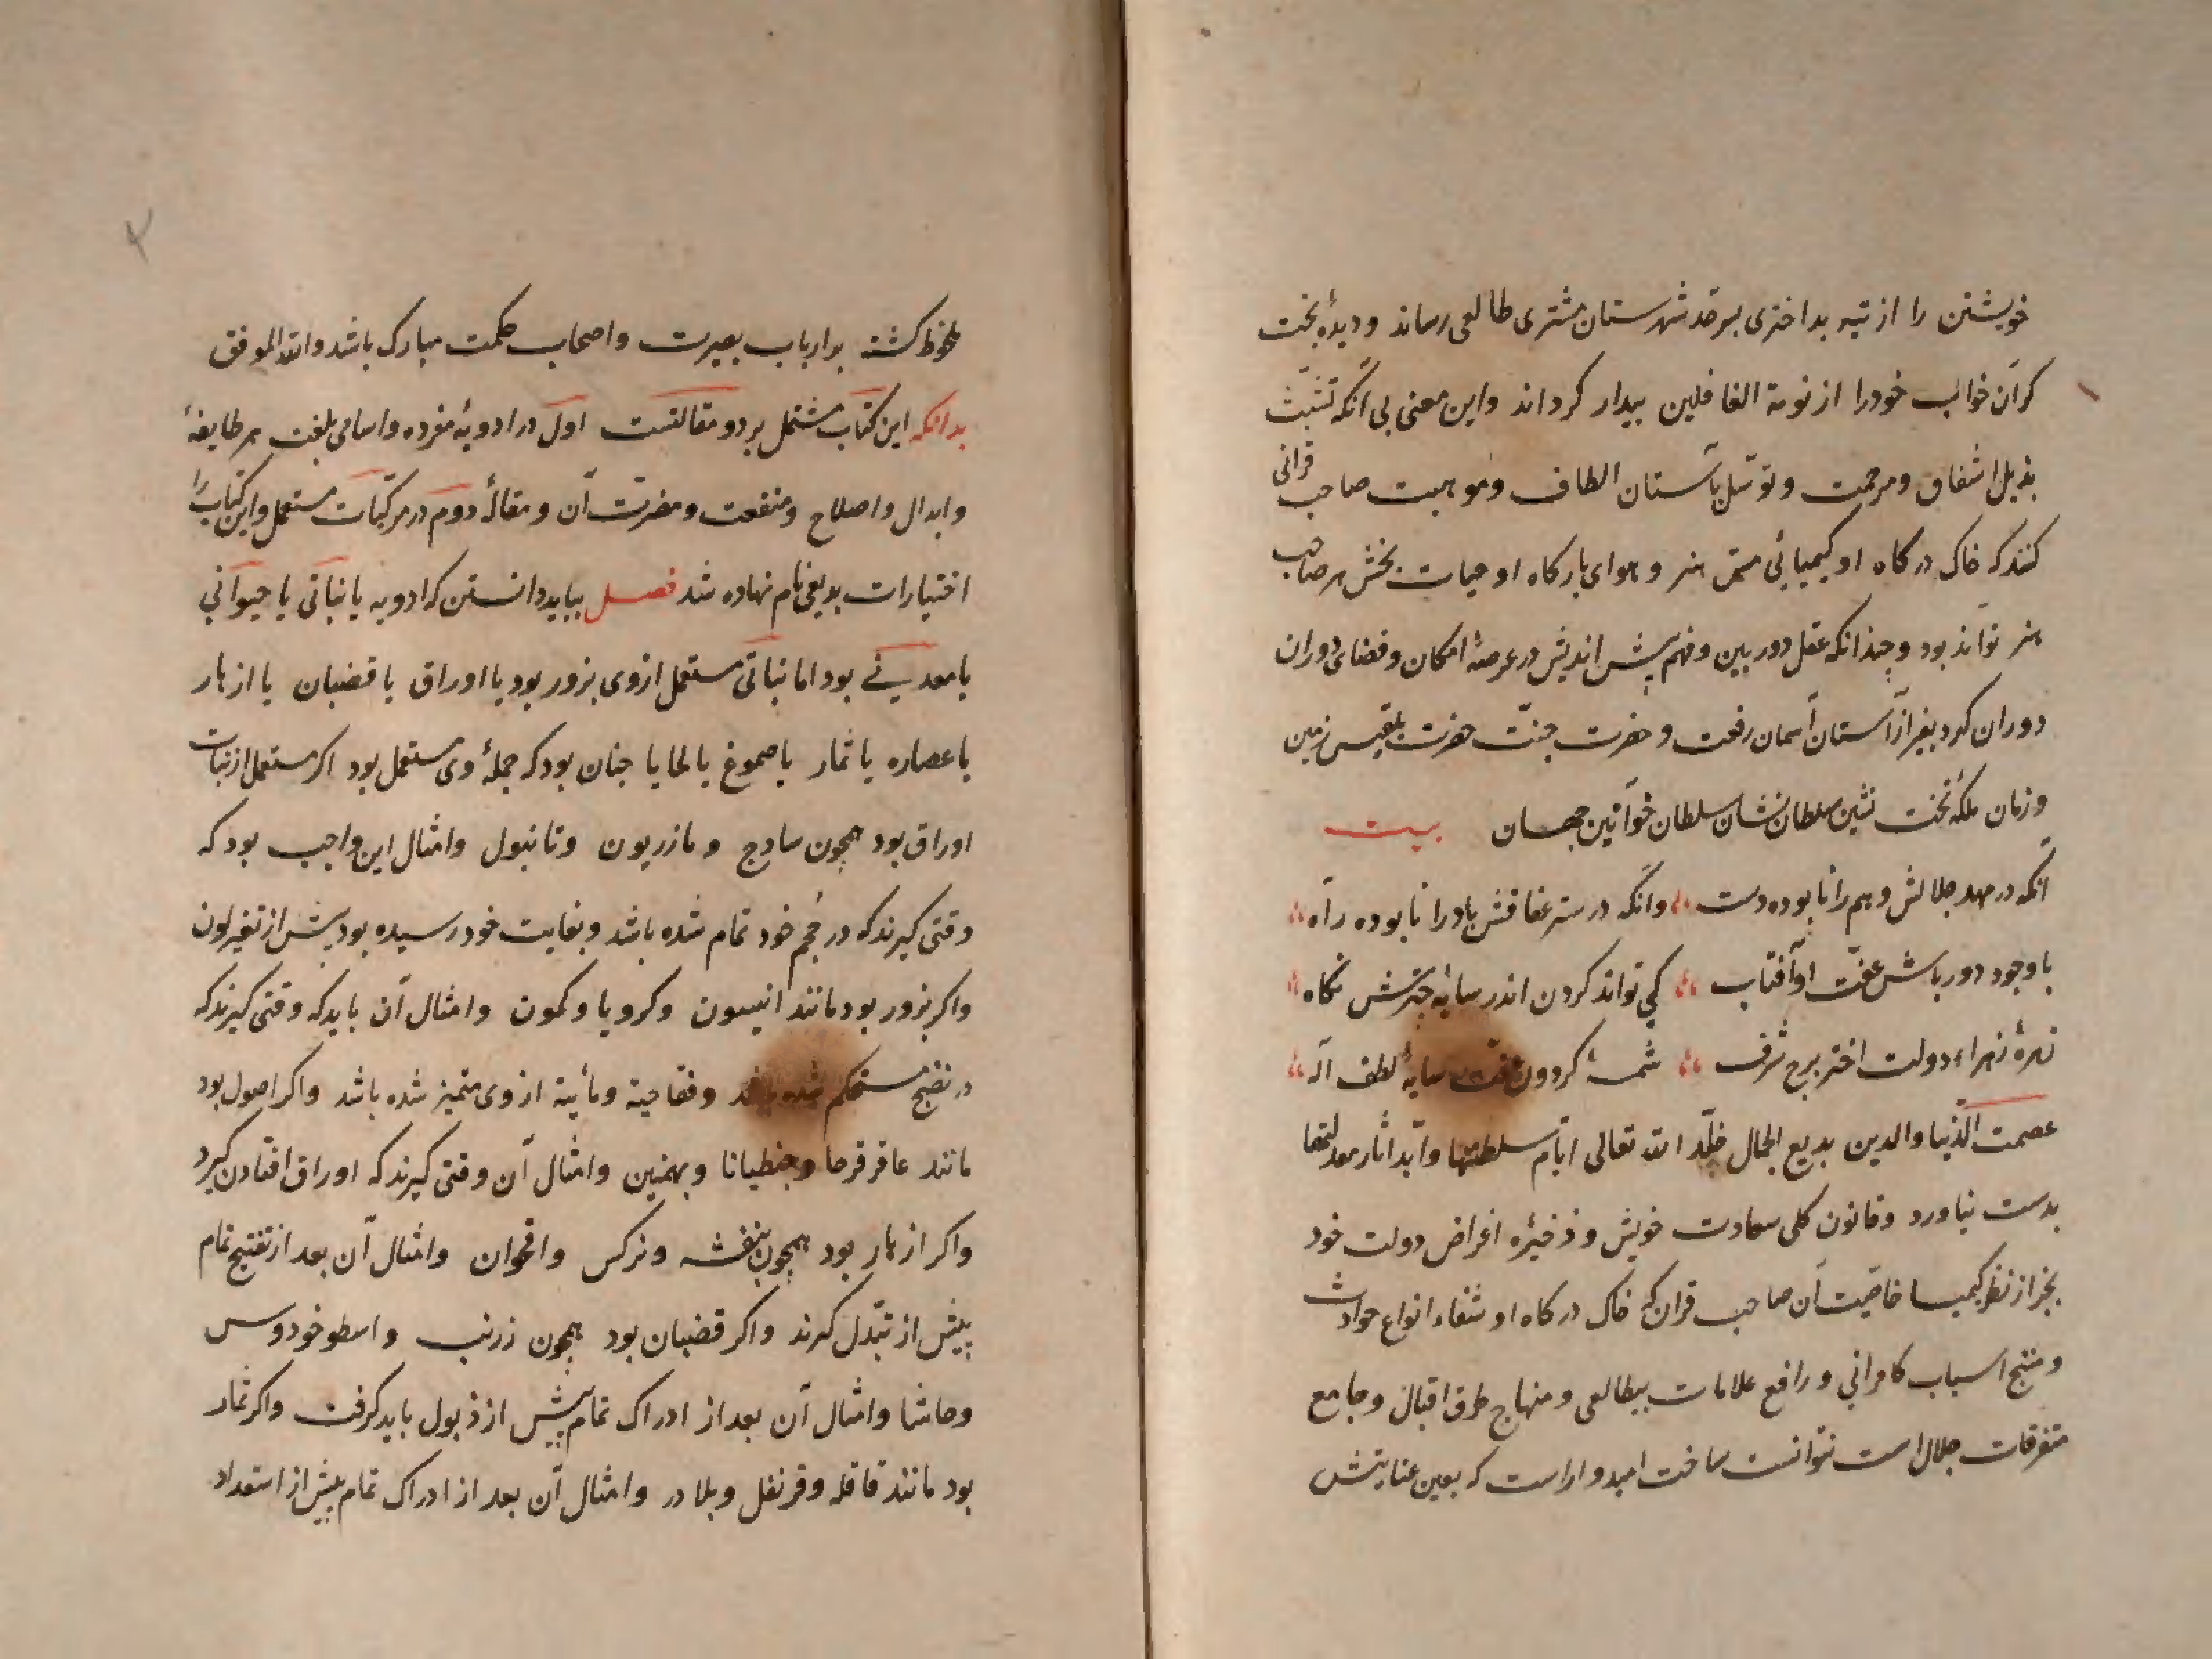 خویشتن را از تیه بداختری بسرحد شهرستان مشتری طالعی رساند و دیدهٔ بخت
کران خواب خودرا از نومة الغافلین بیدار کرداند واین معنی بی آنکه تشبّث
بذیل اشفاق ومرحمت وتوسّل بآستان الطاف وموهبت صاحب قرانی
کند که خاک درکاه او کیمیائی مس هنر و هوای بارکاه او حیات بخش هر صاحب
هنر تواند بود وچندانکه عقل دوربین وفهم پیش اندیش در عرصهٔ امکان وفضای دوران
دوران کرد بغیر از آستان آسمان رفعت و حضرت جنّت حضرت بلقیس زمین
وزمان ملکهٔ تخت نشین سلطان نشان سلطان خواتین جهان بیت
آنکه در مهد جلالش وهم را نابوده دست وانکه در ستر عفافش باد را نابوده راه
با وجود دورباش عفّت او آفتاب کی تواند کردن اندر سایهٔ چترش نکاه
زهرهٔ زهراء دولت اختر برج شرف شمسهٔ کردون سایهٔ لطف اله
عصمت الدّنیا والدین بدیع الجمال خلّد الله تعالی ایّام سلطنتها وابّد اثار معدلتها
بدست نیاورد وقانون کلی سعادت خویش وذخیرهٔ اغراض دولت خود
بجز از نظر کیمیا خاصّیت آن صاحب قران که خاک درکاه او شفاء انواع حوادث
ومنتج اسباب کامرانی ورافع علامات بیطالعی ومنهاج طرق اقبال وجامع
متفرقات جلال است نتوانست ساخت امیدوار است که بعین عنایتش
ملحوظ کشته بر ارباب بصیرت واصحاب حکمت مبارک باشد والله الموفق
بدانکه این کتاب مشتمل بر دو مقالتست اول در ادویهٔ مفرده واسامی بلغت هر طایفهٔ
وابدال واصلاح ومنفعت ومضرت آن ومقالهٔ دوم در مرکّبات مستعمل واین کتاب را
اختیارات بدیعی نام نهاده شد فصل بباید دانستن که ادویه یا نباتی یا حیوانی
یا معدنی بود اما نباتی مستعمل از وی بزور بود یا اوراق یا قضبان یا ازهار
یا عصاره یا ثمار یا صموغ یا لحا یا چنان بود که جملهٔ وی مستعمل بود اکر مستعمل از نبات
اوراق بود همچون ساذج و مازریون وتانبول وامثال این واجب بود که
وقتی کیرند که در حجم خود تمام شده باشد وبغایت خود رسیده بود پیش از تغیر لون
واکر بزور بود مانند انیسون وکرویا وکمون وامثال آن باید که وقتی کیرند که
در نضج مستحکم شده باشد وفقاحیة ومائیة از وی متمیز شده باشد واکر اصول بود
مانند عاقرقرحا وجنطیانا وبهمنین وامثال آن وقتی کیرند که اوراق افتادن کیرد
واکر ازهار بود همچون بنفشه ونرکس واقحوان وامثال آن بعد از تفتیح تمام
پیش از تبّدل کیرند واکر قضبان بود همچون زرنب واسطوخودوس
وحاشا وامثال آن بعد از ادراک تمام پیش از ذبول باید کرفت واکر ثمار
بود مانند قاقله وقرنفل وبلادر وامثال آن بعد از ادراک تمام پیش از استعداد